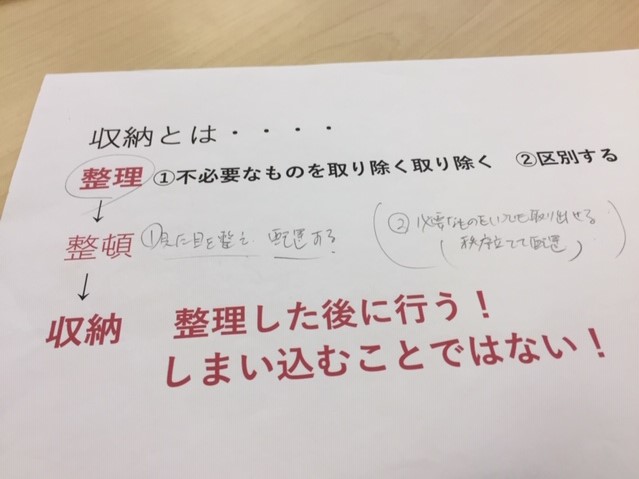 収納とは・・・・
整理 ①不必要なものを取り除く取り除く ②区別する
↓
整頓 ①見た目を整え 配置する (②必要なものをいつでも取り出せる
(秩序立てて配置)
↓
収納 整理した後に行う！
しまい込むことではない！